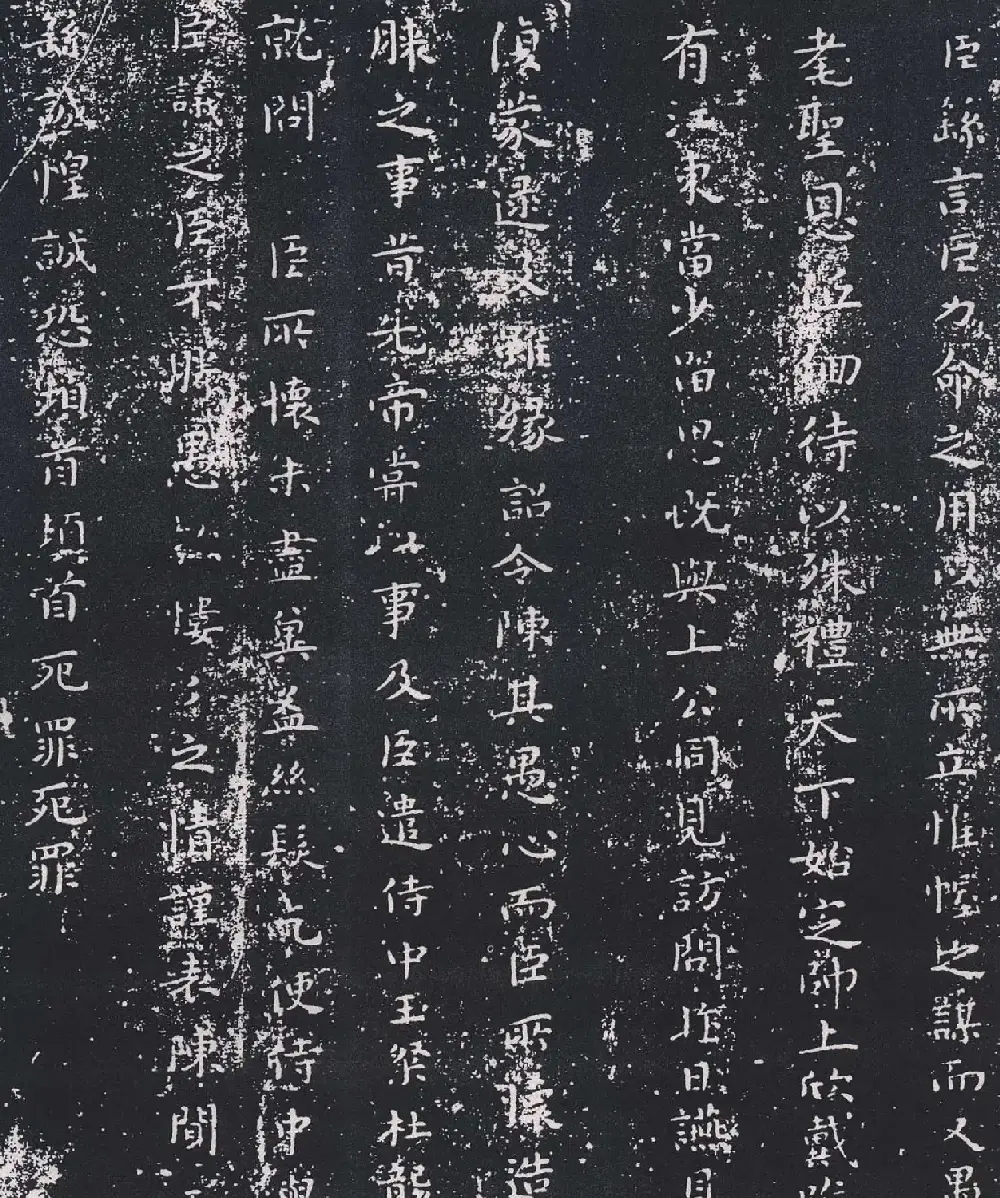 臣繇言臣力命之用以無所立惟帷幄之謀而又愚
耄聖恩低徊待以殊禮天下始定帥上欣戴
有江東當少留思既與上公同見訪問昨日讌見
復蒙逮及雖緣詔令陳其愚心而臣所懷造
膝之事昔先帝嘗以事及臣遣侍中王粲杜襲
就問臣所懷未盡奚益絲髮乞使侍中與
臣議之臣不勝愚以慺慺之情謹表陳聞
繇誠惶誠恐頓首頓首死罪死罪